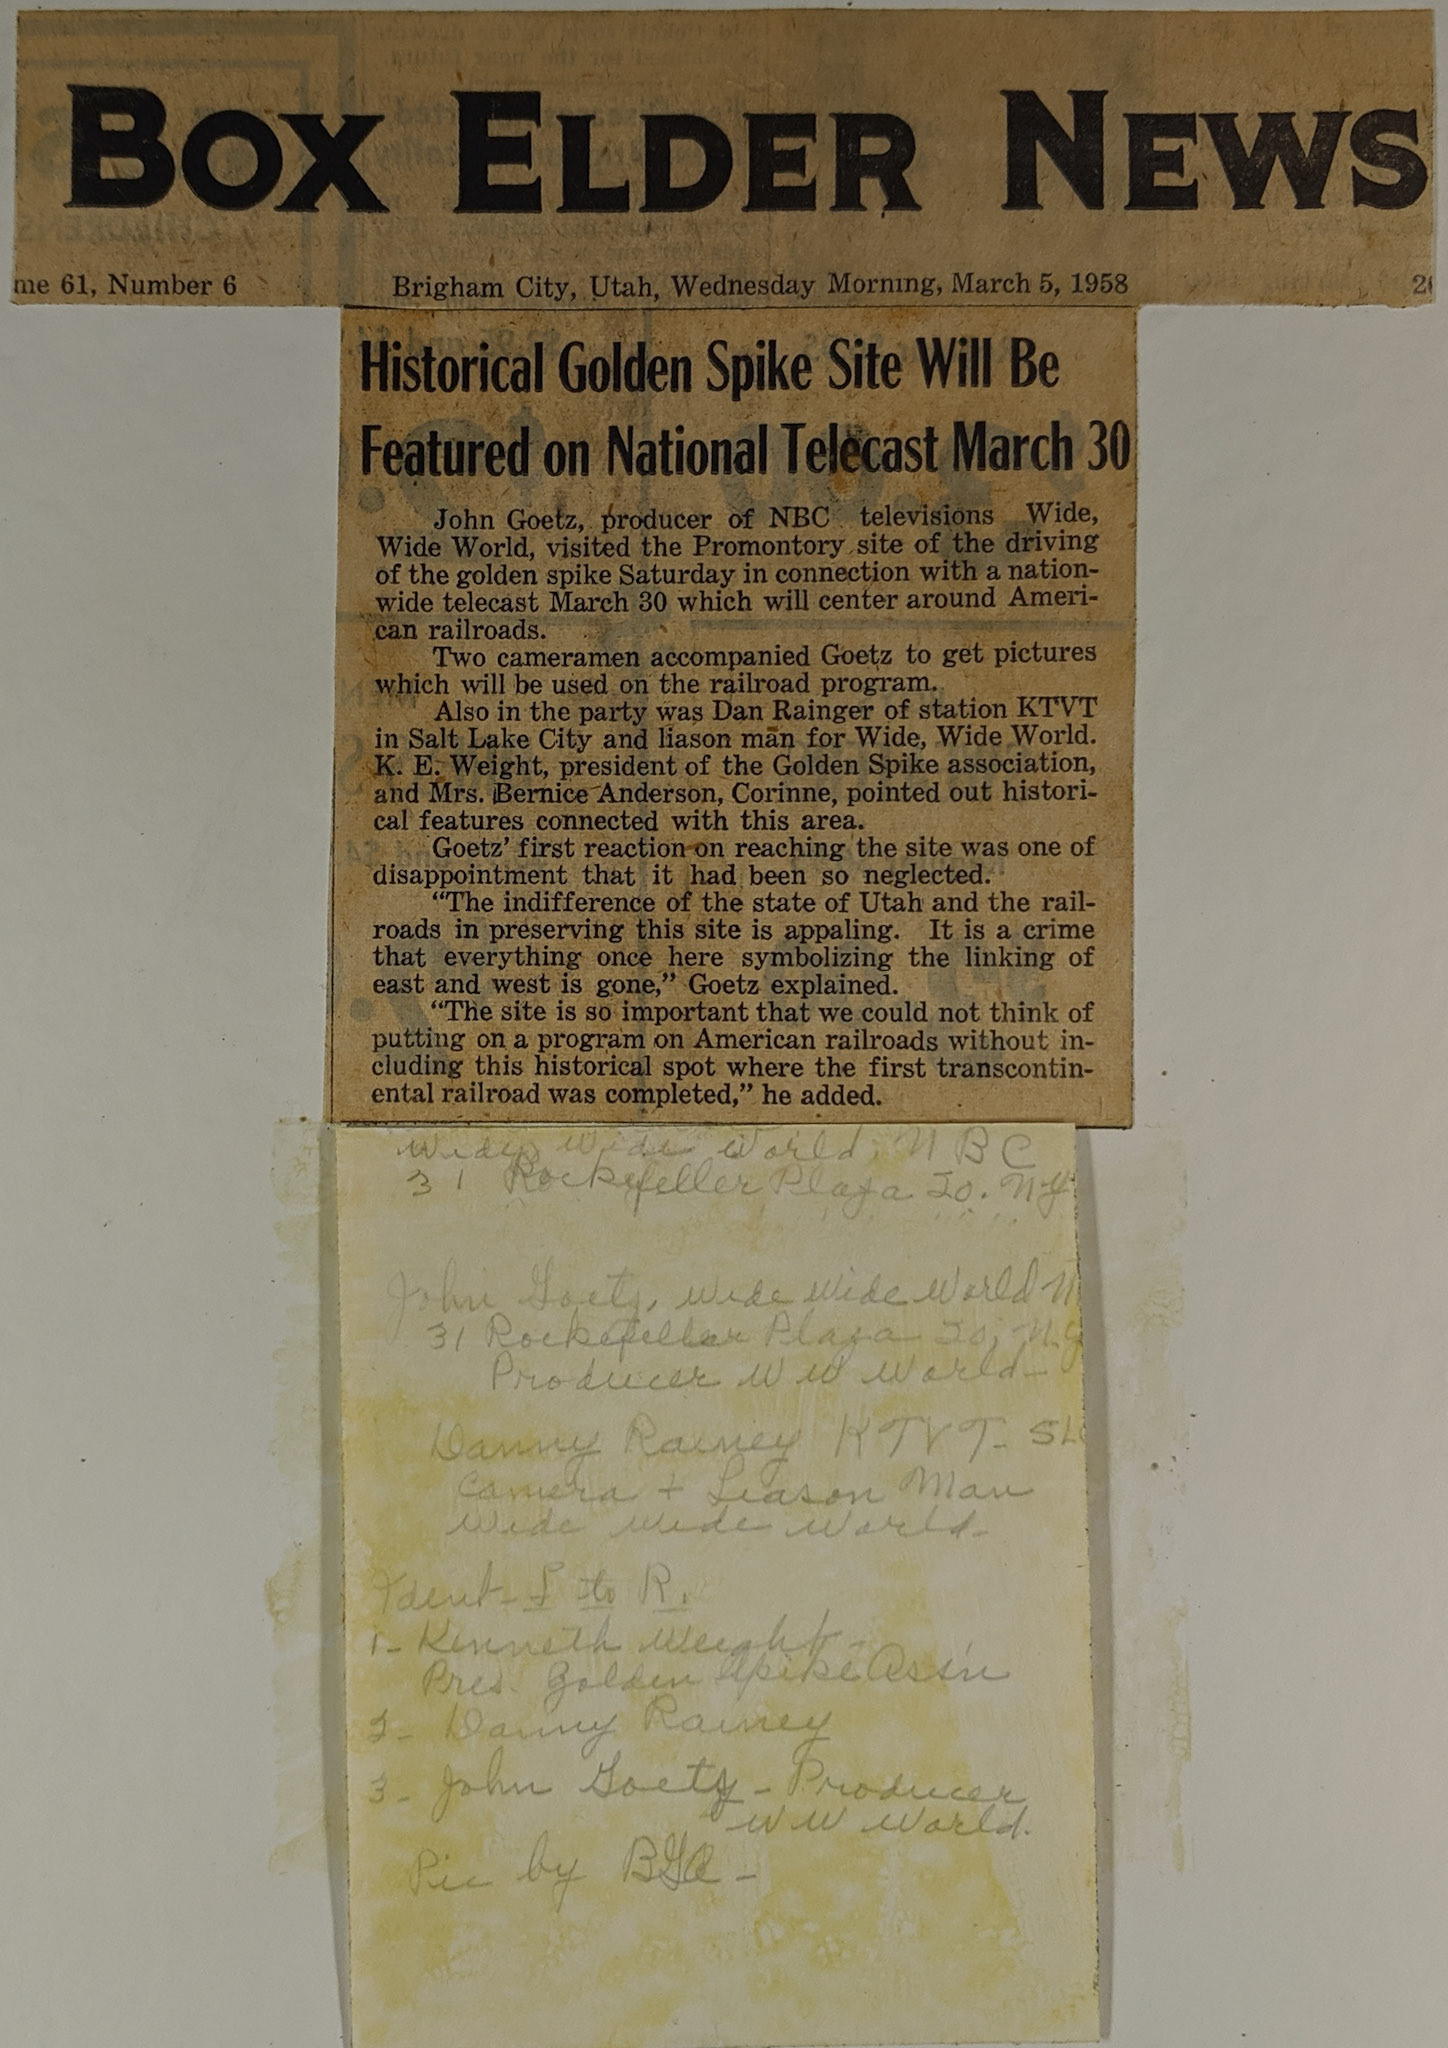 BOX ELDER NEWS
me 61, Number 6 Brigham City, Utah, Wednesday Morning, March 5, 1958
Historical Golden Spike Site Will Be
Featured on National Telecast March 30
John Goetz, producer of NBC televisions Wide,
Wide World, visited the Promontory site of the driving
of the golden spike Saturday in connection with a nation-
wide telecast March 30 which will center around Ameri-
can railroads.
Two cameramen accompanied Goetz to get pictures
which will be used on the railroad program.
Also in the party was Dan Rainger of station KTVT
in Salt Lake City and liason man for Wide, Wide World.
K. E. Weight, president of the Golden Spike association,
and Mrs. Bernice Anderson, Corinne, pointed out histori-
cal features connected with this area.
Goetz' first reaction on reaching the site was one of
disappointment that it had been so neglected.
"The indifference of the state of Utah and the rail-
roads in preserving this site is appaling. It is a crime
that everything once here symbolizing the linking of
east and west is gone," Goetz explained.
"The site is so important that we could not think of
putting on a program on American railroads without in-
cluding this historical spot where the first transcontin-
ental railroad was completed," he added.
Wide, Wide World, NBC
31 Rockefeller Plaza 20. NY
John Goetz, Wide Wide World N
31 Rockefeller Plaza 20, N.Y
Producer W W World-
Danny Rainey KTVT- SL
Camera + Leason Man
Wide Wide World-
Ident- L to R.
1- Kenneth Weight-
Pres. Golden Spike Ass'n
2- Danny Rainey
3- John Goetz - Producer
W W World.
Pic by BGA-